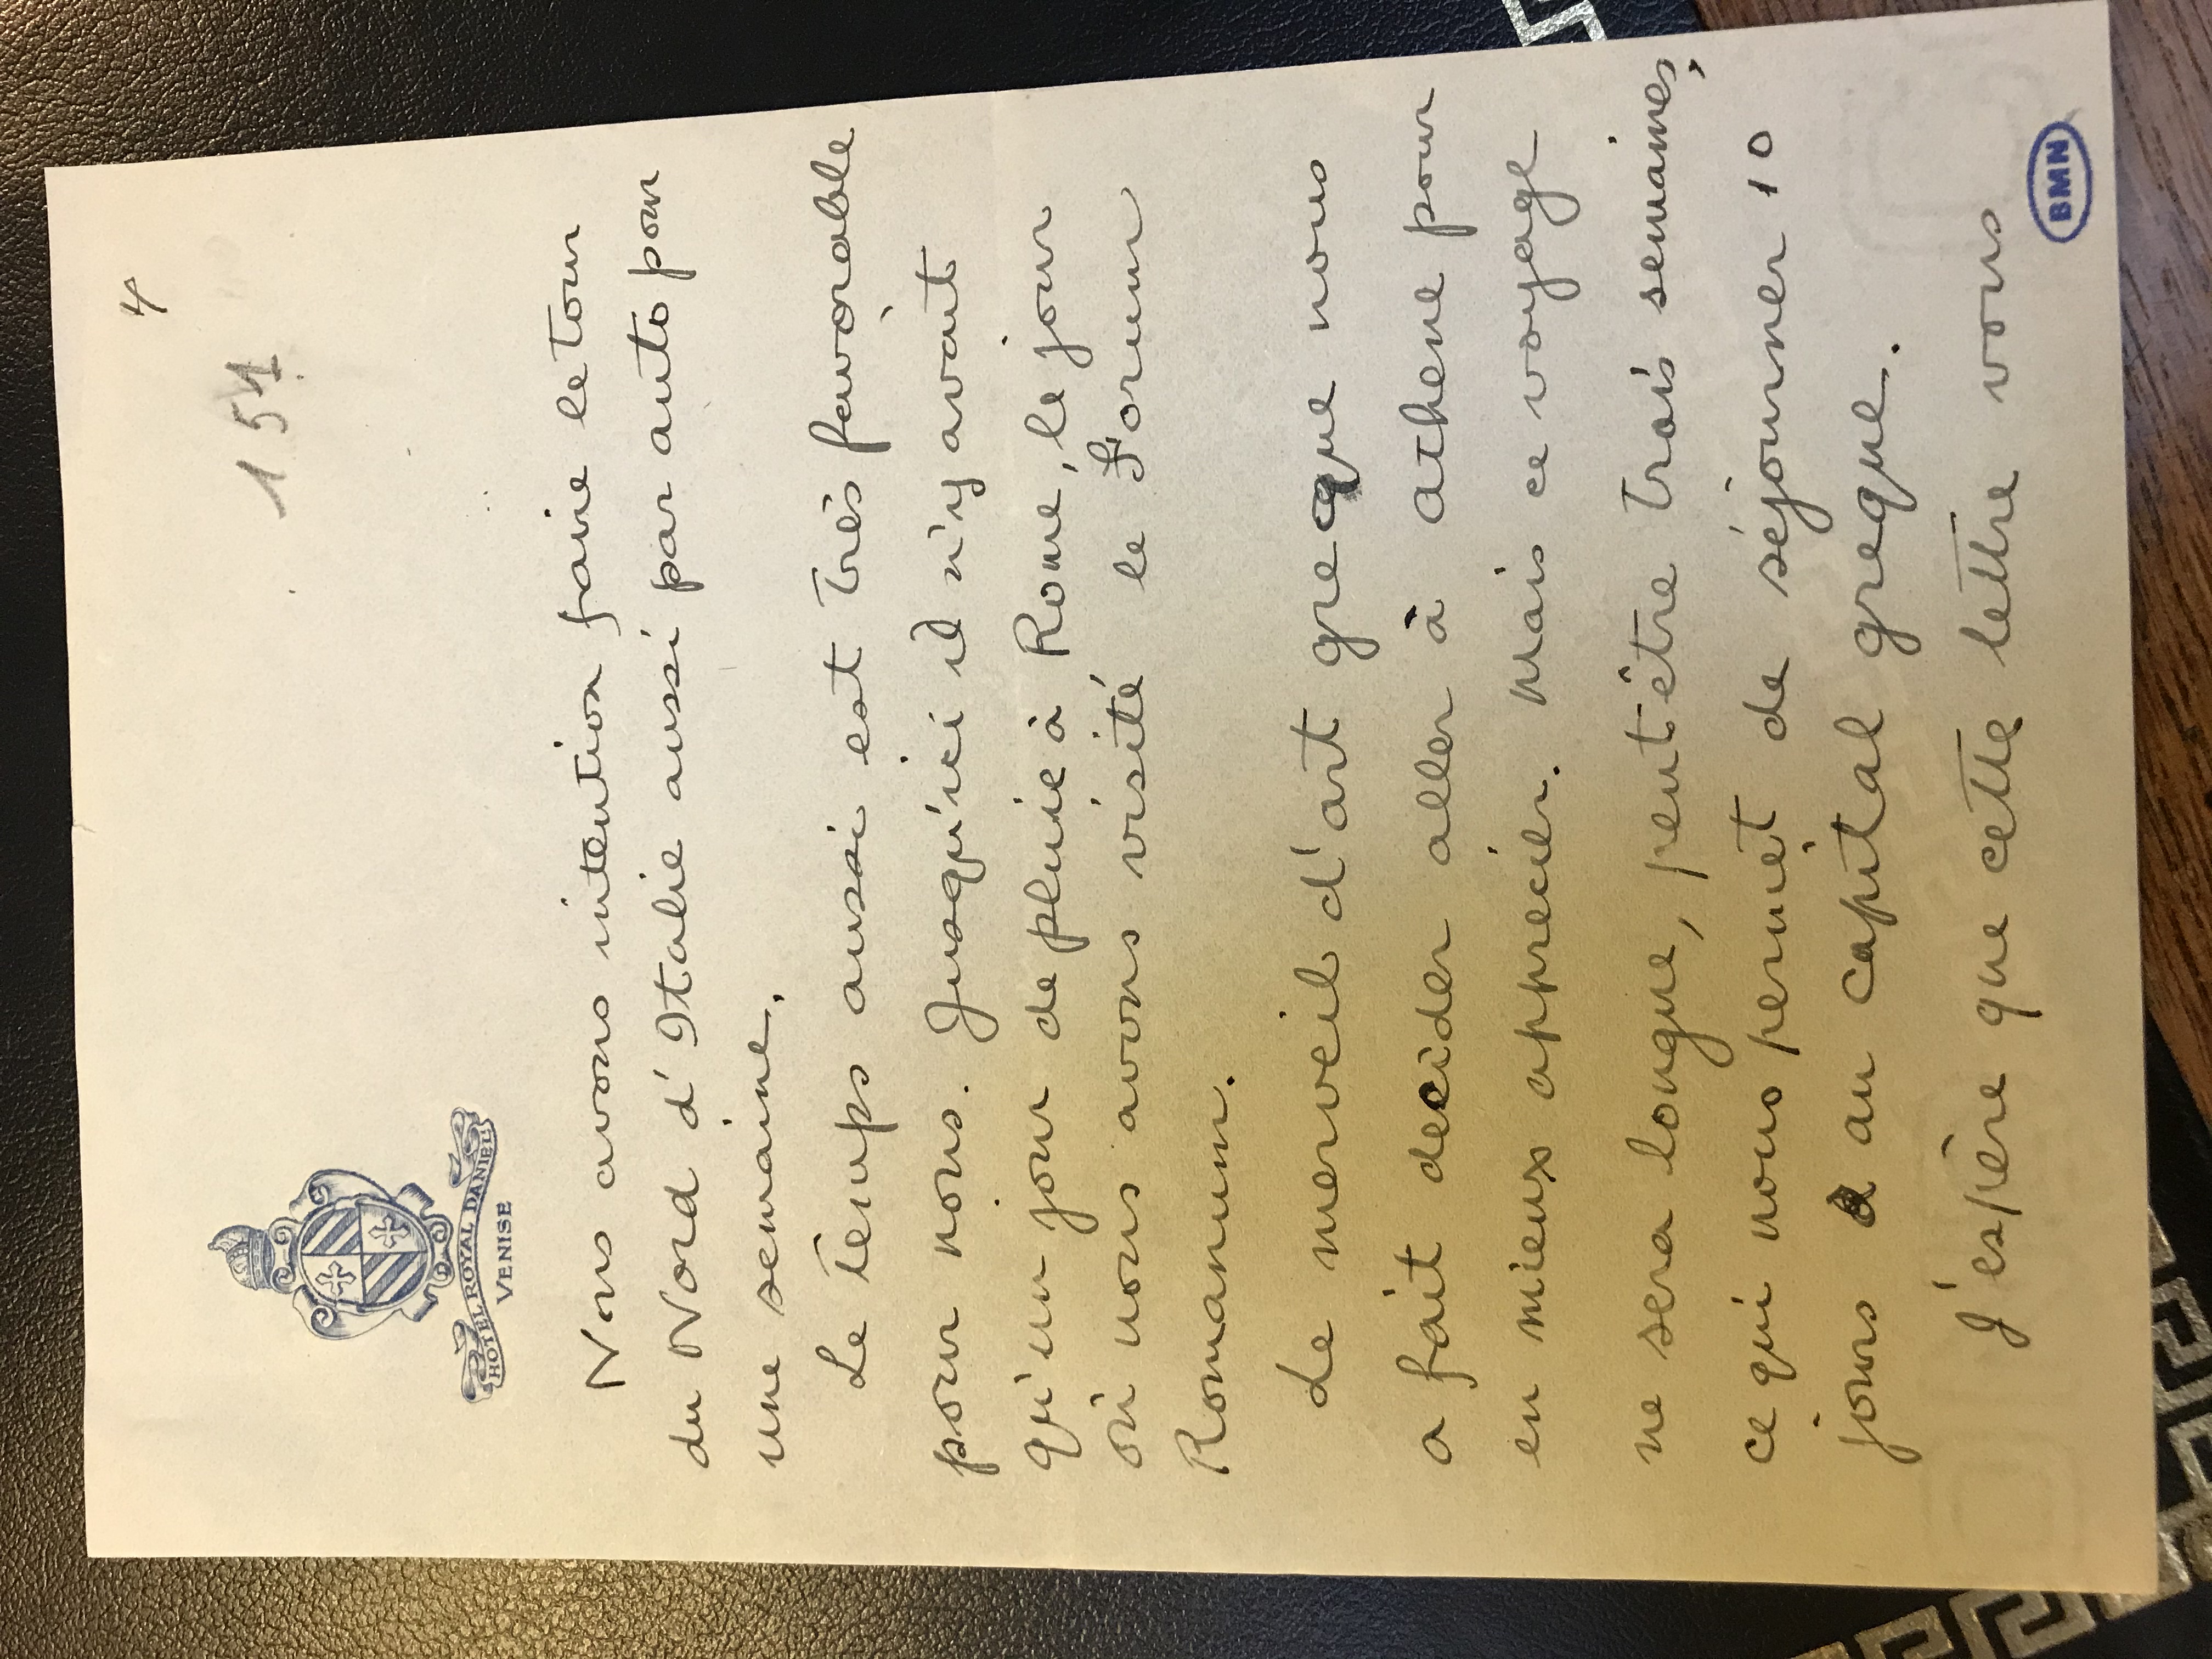 4
151
HOTEL ROYAL DANIELI
VENISE
Nous avons intention faire le tour
du Nord d'Italie aussi par auto pour
une semaine.
Le temps aussi est très favorable
pour nous. Jusqu'ici il n'y avait
qu'un jour de pluie à Rome, le jour
où nous avons visité le Forum
Romanum.
Le merveil d'art greque nous
a fait decider aller à athene pour
en mieux apprecier. Mais ce voyage
ne sera longue, peut-être trois semaines,
ce qui nous permet de séjourner 10
jours au capital greque.
J'espère que cette lettre vous
BMN